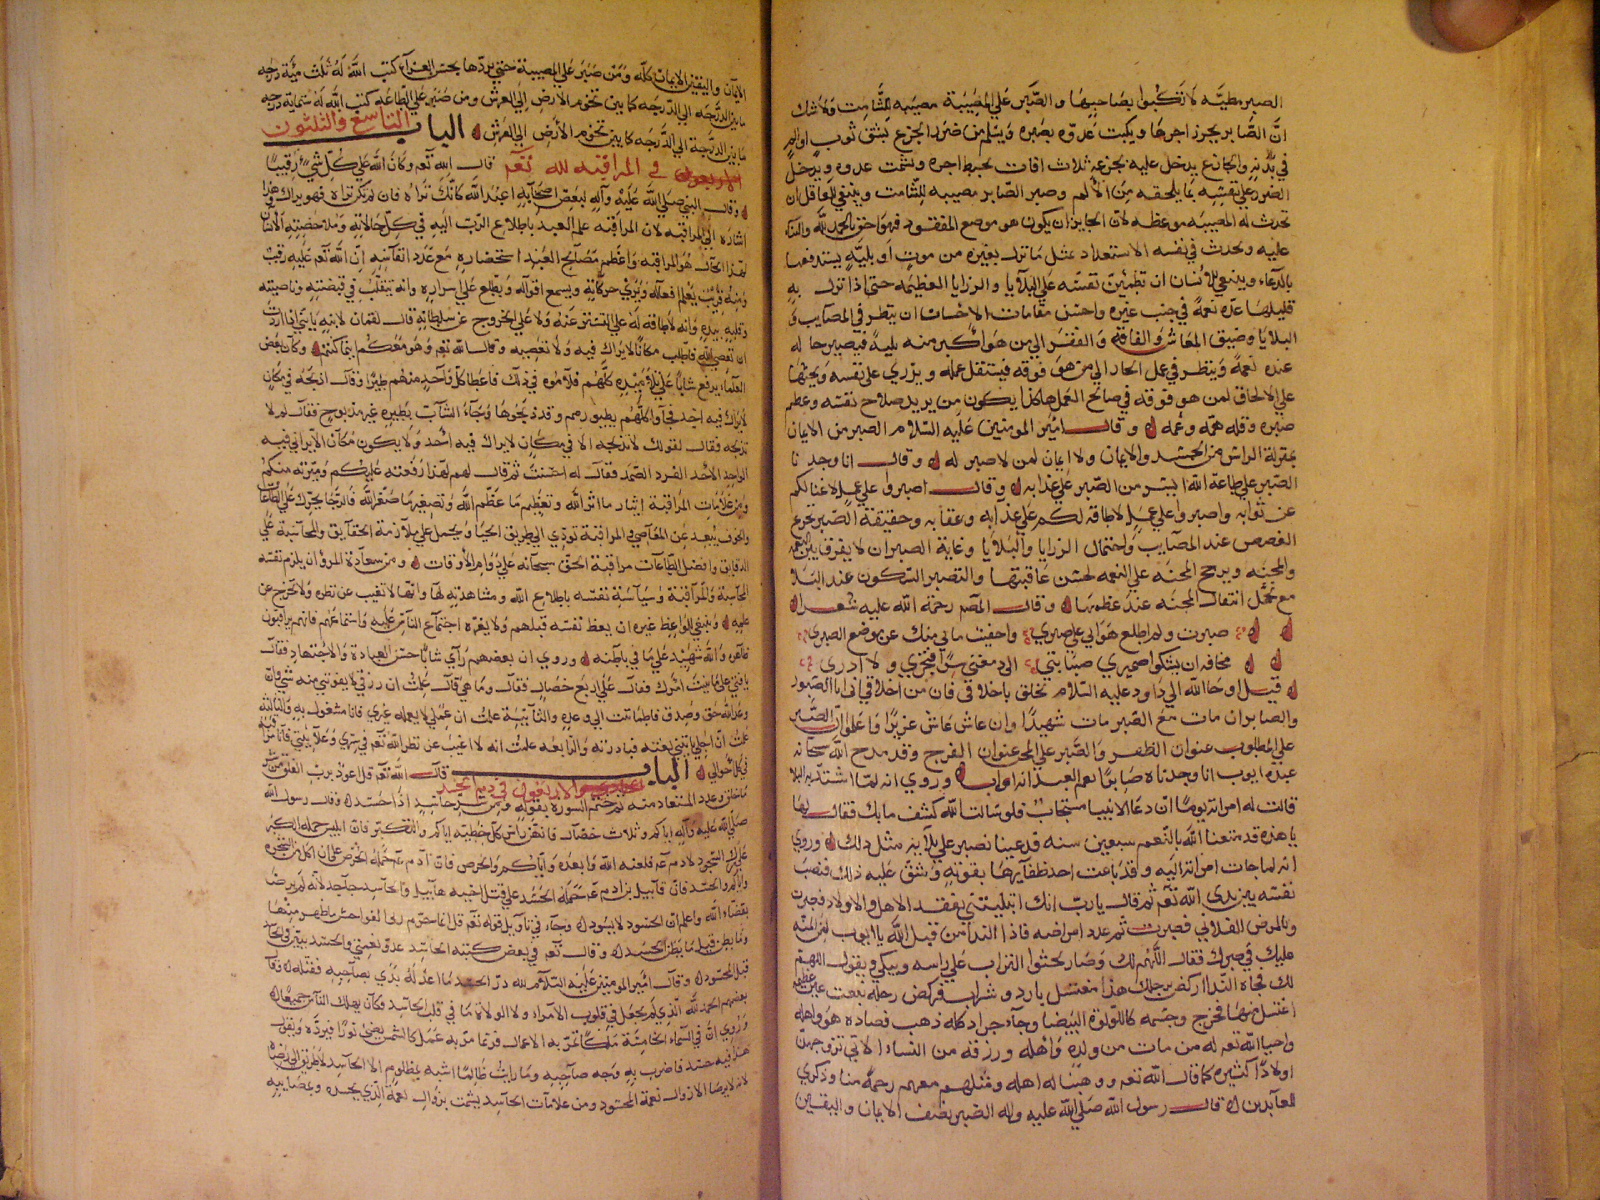 الصبر مطيّه لا تكبوا بصاحبها و الصّبر علي المصيبة مصيبه للشّامت ولا شك
انّ الصّابر يحرز اجرها ويكبت عدوّه بصبره ويسلم من ضرر الجزع بشق ثوب او الم
في بدنه والجازع يدخل عليه بجزعه ثلاث افات يحبط اجره ويشمت عدوه ويدخل
الضرر علي نفسه بما يلحقه من الالم وصبر الصّابر مصيبه للشّامت وينبغي للعاقل ان
تحدث له المصيبه موعظه لانّ الجايز ان يكون هو موضع المفقود فهو احق بالحمد للّه والثناء
عليه ويحدث في نفسه الاستعداد بمثل ما نزل بغيره من موت او بليّة يستدفعها
بالدعاء وينبغي للانسان ان تطمئنّ نفسه علي البلايا والرزايا العظيمه حتي اذا نزل به
قليلها عدّه نعمةً في جنب غيره واحسن مقامات الاحسان ان ينظر في المصايب و
البلايا وضيق المعاش والفاقة والفقر الي من هو اكبر منه بلية فيصير حاله
عنده نعمةً وينظر في عمل الخير الي من هو فوقه فيستقل عمله و يزري علي نفسه ويحثها
علي الالحاق لمن هو فوقه في صالح العمل هكذا يكون من يريد صلاح نفسه وعظم
صبره وقله همّه وغمه وقال امير المومنين عليه السّلام الصبر من الايمان
بمنزلة الراس من الجسد ولا ايمان لمن لا صبر له وقال انا وجدنا
الصّبر علي طاعة اللّه ايسر من الصّبر علي عذابه وقال اصبروا علي عمل لا غنا لكم
عن ثوابه واصبروا علي عمل لا طاقه لكم علي عذابه وعقابه وحقيقة الصّبر تجرع
الغصص عند المصايب واحتمال الرزايا والبلايا وغاية الصبر ان لا يفرق بين النعمه
والمحنه ويرجح المحنه علي النعمه لحسن عاقبتها والتصبر السّكون عند البلا
مع تحمّل اثقال المحنه عند عظمها وقال المصم رحمة اللّه عليه شعرا
صبرت ولم اطلع هواي علي صبري واخفيت ما بي منك عن موضع الصبر
مخافه ان يشكوا ضميري صبابتي الي دمعتي سرًا فتجري ولا ادري
قيل اوحا اللّه الي داود عليه السّلام تخلق باخلاقي فان من اخلاقي اني انا الصّبور
والصابر ان مات مع الصّبر مات شهيدًا وان عاش عاش عزيزًا واعلموا ان الصّبر
علي المطلوب عنوان الظفر والصّبر علي المحن عنوان الفرج وقد مدح اللّه سبحانه
عبده ايوب انا وجدناه صابرًا نعم العبد انه اواب وروي انه لما اشتد به البلا
قالت له امراته يومًا ان دعا الانبيا مستجاب فلو سالت اللّه كشف ما بك فقال لها
يا هذه قد متعنا اللّه بالنّعم سبعين سنه فدعينا نصبر علي بلآيه مثل ذلك وروي
انه لما جات امراته اليه وقد باعت احد ظفآيرها بقوته وشق عليه ذلك فنصب
نفسه بين يدي اللّه تعم ثم قال يا ربّ انك ابتليتني بفقد الاهل والاولاد فصبرت
وبالمرض الفلاني فصبرت ثم عدد امراضه فاذا الندا من قبل اللّه يا ايوب لمن المنّه
عليك في صبرك فقال اللّهم لك وصار يحثوا التراب علي راسه ويبكي ويقول اللهم
لك فجاه الندا اركض برجلك هذا مغتسل بارد وشراب فركض رحله فنبعت عين عظيمه
اغتسل منها فخرج وجسمه كاللولوة البيضا وجآء جراد كله ذهب فصاده هو واهله
واحيا اللّه تعم له من مات من ولده واهله ورزقه من النساء الاتي تزوجهنّ
اولادًا كثيره كما قال اللّه تعم ووهبنا له اهله ومثلهم معهم رحمةً منا وذكري
للعابدين قال رسول اللّه صلّي اللّه عليه واله الصّبر نصف الايمان واليقين
الايمان واليقين الايمان كلّه ومن صبر علي المصيبة حتي يردّها بحسن العزاء كتب اللّه له ثلث مئة درجه
ما بين الدّرجه الي الدّرجه كما بين تخوم الارض الي العرش ومن صبر علي الطّاعه كتب اللّه له ستماية درجه
ما بين الدّرجة الي الدّرجه كما بين تخوم الارض الي العرش الباب التاسع والثلثون
في المراقبه لله تعم قال اللّه تعم وكان اللّه علي كلّ شيءٍ رقيبًا
وقال النبي صلي اللّه عليه وآله لبعض اصحابه اعبد اللّه كانّك تراه فان لم تكن تراه فهو يراك وهذا
اشاره الي المراقبه لان المراقبه علم العبد باطلاع الرّب اليه في كلّ حالاته وملاحضته الانسان
لهذا الحال هو المراقبه واعظم مصالح العبد استحضاره مع عدد انفاسه انّ اللّه تعم عليه رقيب
ومنه قريب يعلم فعاله ويري حركاته ويسمع اقواله ويطلع علي اسراره وانه يتقلّب في قبضته وناصيته
وقلبه بيده وانه لا طاقه له علي التستر عنه ولا علي الخروج عن سلطانه قال لقمان لابنه يا بنيّ اذا اردت
ان تعصي اللّه فاطلب مكانًا لا يراك فيه ولا تعصيه وقال اللّه تعم وهو معكم اينما كنتم وكان بعض
العلماء يرفع شابًا علي تلاميذه كلّهم فلاموه في ذلك فاعطا كلّ واحدٍ منهم طيرًا وقال اذبحه في مكان
لا يراك فيه احد فجآوا كلهم بطيورهم وقد ذبحوها وجآء الشآب بطيره غير مذبوح فقال لم لا
تذبحه فقال لقولك لا تذبحه الا في مكان لا يراك فيه احد ولا يكون مكان الا يراني فيه
الواحد الاحد الفرد الصّمد فقال له احسنت ثم قال لهم لهذا رفعته عليكم وميّزته منكم
ومن علامات المراقبة ايثار ما اثر اللّه وتعظيم ما عظّم اللّه وتصغير ما صغر اللّه فالرجا يحرّك علي الطاعات
والخوف يبعد عن المعاصي والمراقبة تودّي الي طريق الحيا ويحمل علي ملازمة الحقايق والمحاسبة علي
الدقايق وافضل الطّاعات مراقبة الحق سبحانه علي دوام الاوقات ومن سعادة المرو ان يلزم نفسه
المحاسبة والمراقبة وسياسة نفسه باطلاع اللّه ومشاهدته لها وانها لا تغيب عن نظره ولا تخرج عن
علمه وينبغي للواعظ غيره ان يعظ نفسه قبلهم ولا يغرّه اجتماع النّاس عليه واستماعهم فانهم يراقبون
ظاهره واللّه شهيد علي ما في باطنه وروي ان بعضهم راي شابًا حسن العبادة والاجتهاد فقال
يا فتي علي ما بنيت امرك فقال علي اربع خصال فقال وما هي قال علمت ان رزقي لا يفوتني منه شي وان
وعد اللّه حق وصدق فاطماننت الي وعده والثّآنيه علمت ان عملي لا يعمله غيري فانا مشغول به والثالثة
علمت انّ اجلي ياتيني بغته فبادرته والرّابعه علمت انه لا اغيب عن نظر اللّه تعم في سرّي وعلانيتي فانا اراقبه
في كل احوالي الباب الاربعون في ذم الحسد قال اللّه تعم قل اعوذ بربّ الفلق من شر
ما خلق وعدد المستعاد منه ثم ختم السورة بقوله ومن شر حاسدٍ اذا حسد وقال رسول اللّه
صلّي اللّه عليه وآله اياكم وثلاث خصال فانهن راس كلّ خطيئه اياكم والتكبّر فان ابليس حمله الكبر
علي ترك السّجود لادم عم فلعنه اللّه وابعده واياكم والحرص فان ادم عم حمله الحرص علي ان اكل من الشجره
واياكم والحسد فان قابيل بن ادم عم حمله الحسد علي قتل اخيه هابيل والحاسد جاحد لانه لم يرض
بقضاء اللّه واعلم ان الحسود لا يسود وجآء في تاويل قوله تعم قل انما حرّم ربي الفواحش ما ظهر منها
وما بطن قيل ما بطن الحسد وقال تعم في بعض كتبه الحاسد عدوّ نعمتي والحسد يبين في الحاسد
قبل المحسود وقال امير المومنين عليه السّلام للّه درّ الحسد ما اعدله بدي بصاحبه فقتله وقال
بعضهم الحمد للّه الّذي لم يجعل في قلوب الامرآء والولاة ما في قلب الحاسد فكان يهلك النّاس جميعًا
وروي انّ في السّماء الخامسة ملكًا تمرّ به الاعمال فربّما مرّ به عمل كالشمس يضيء نورًا فيردّه ويقول
هذا فيه حسد فاضرب به وجه صآحبه وما رايت ظالمًا اشبه بمظلوم الا الحاسد
لانه لا يرضا الا زوال نعمة المحسود ومن علامات الحاسد يشمت بزوال نعمة الذي يحسده ومصايبه